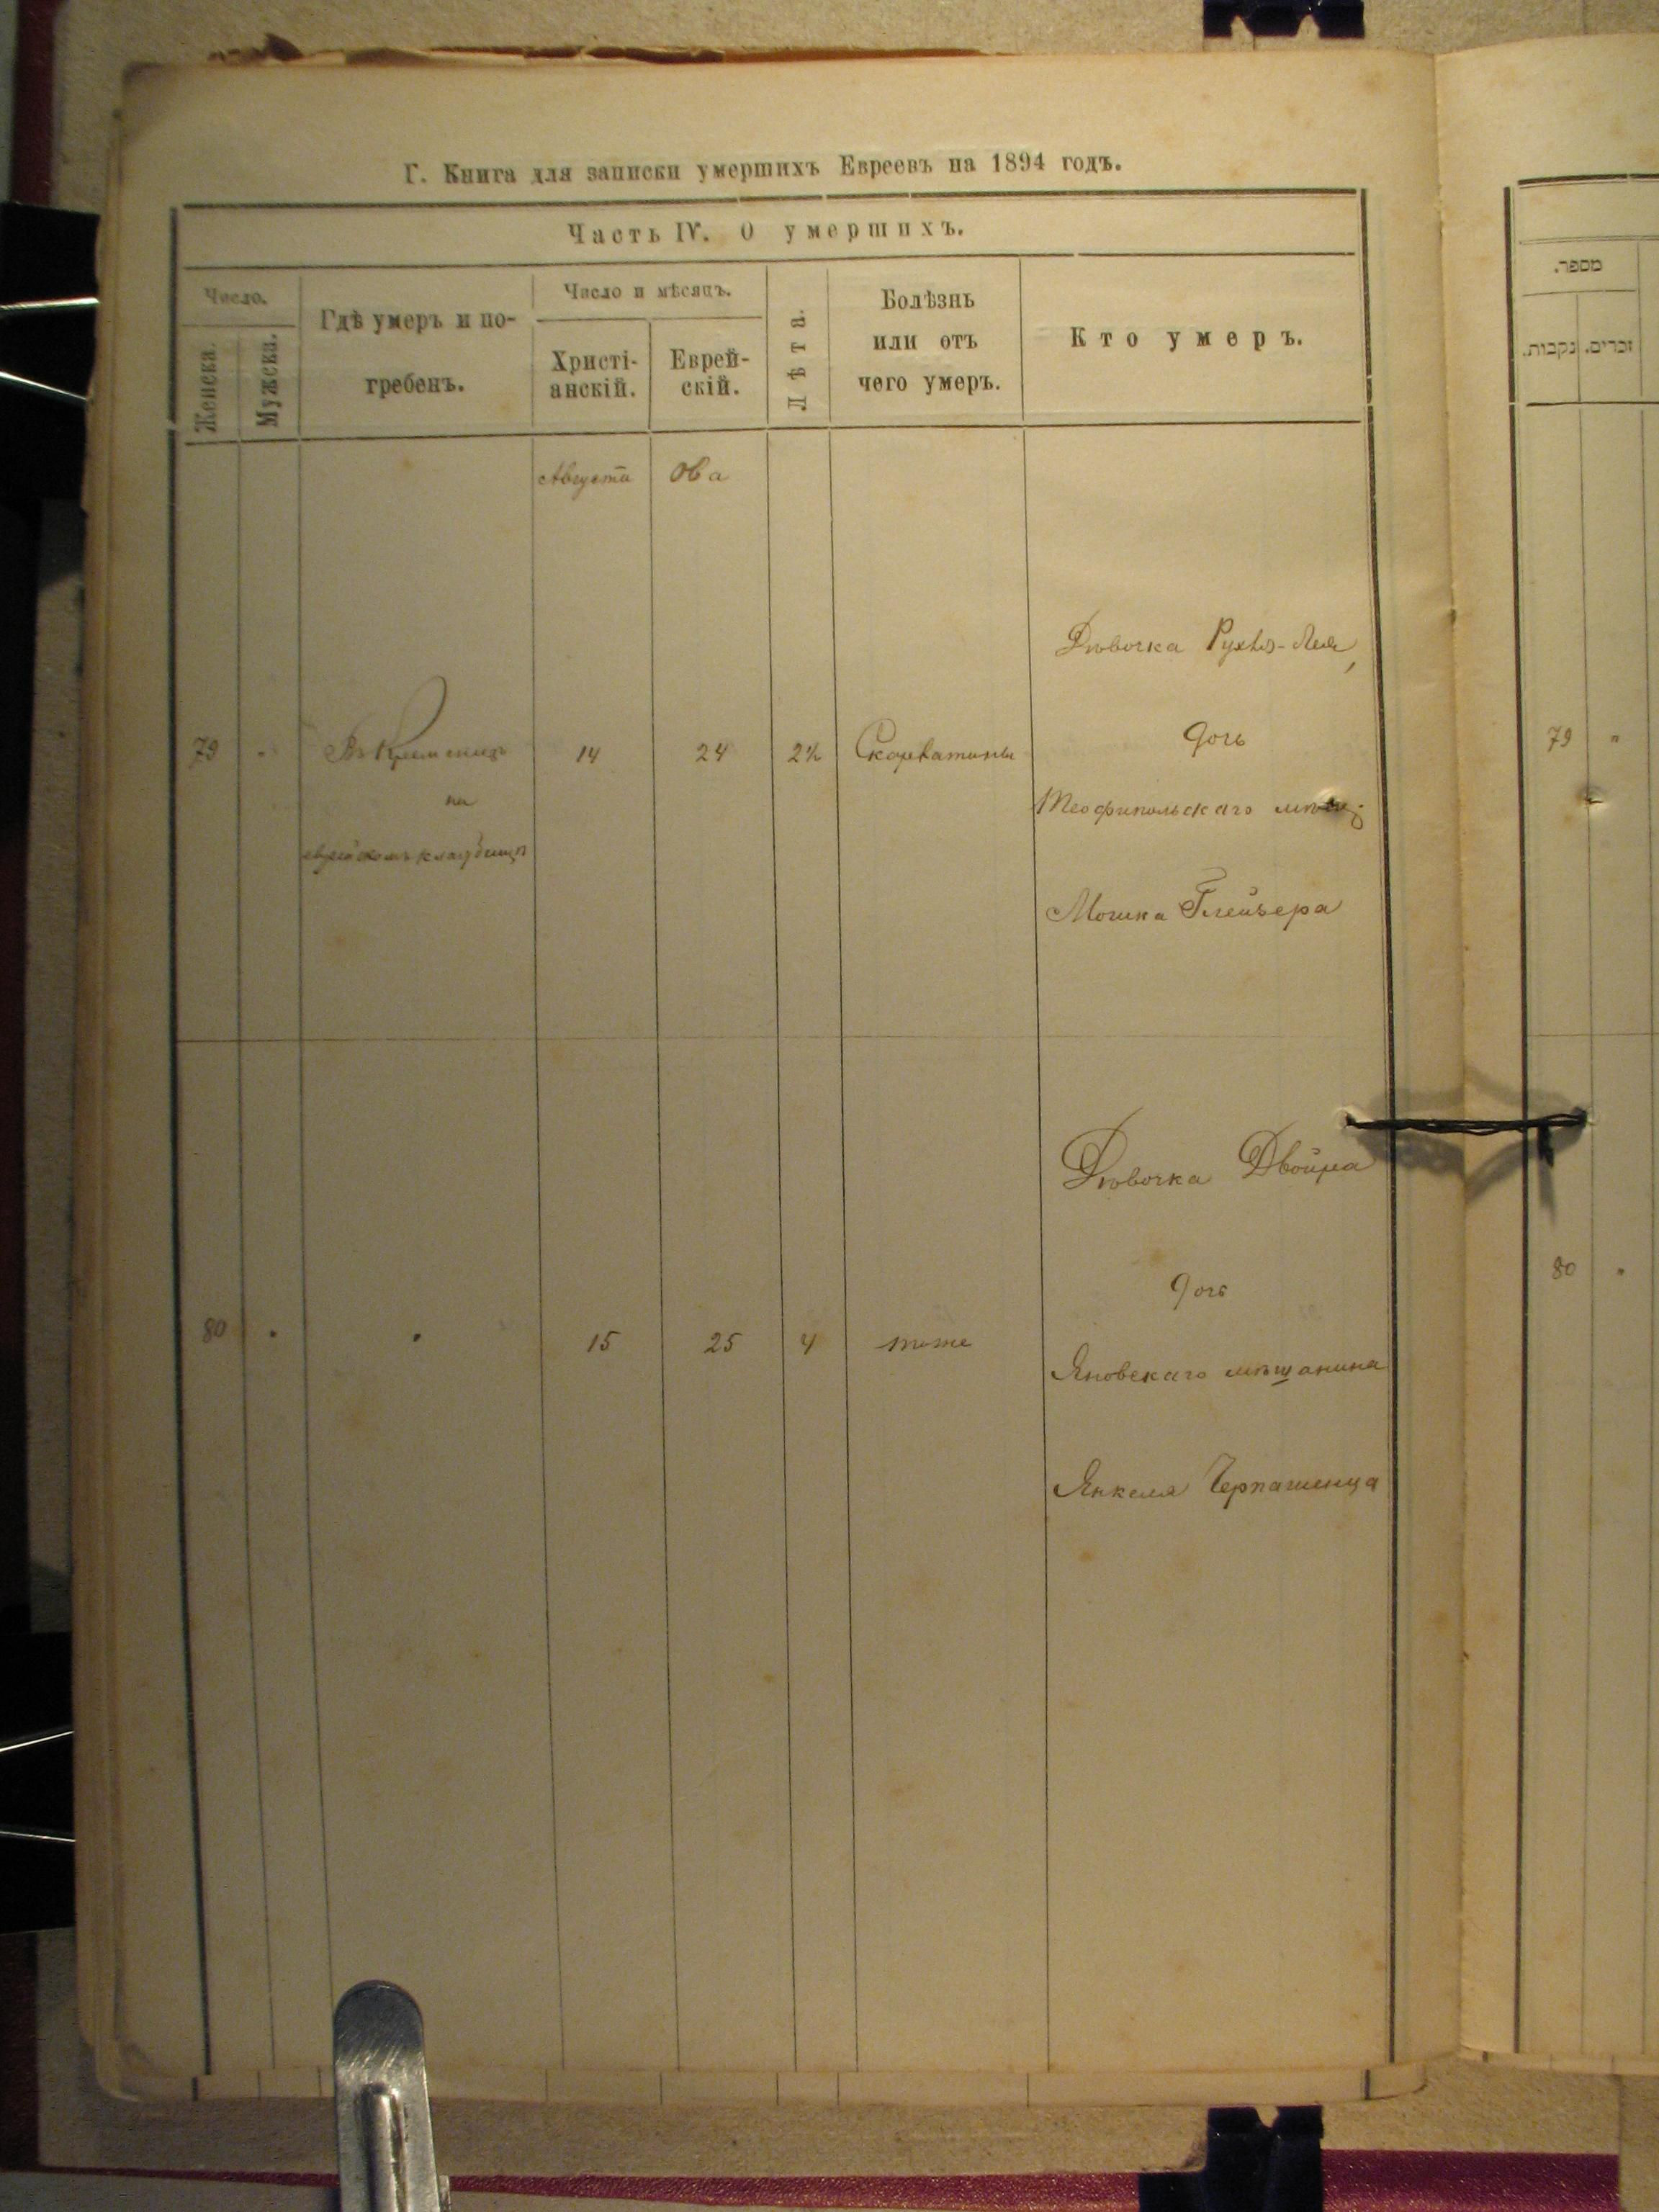 Г. Книга для записки умершихъ Евреевъ на 1894 годъ.
Часть IV. О умершихъ.
Число.
Женска.
Мужска.
Гдѣ умеръ и по-
гребенъ.
Число и мѣсяцъ.
Христі-
анскій.
Еврей-
скій.
Лѣта.
Болѣзнь
или отъ
чего умеръ.
Кто умеръ.
Августа
Ова
79
Въ Кременцѣ
на
еврейскомъ кладбищѣ
14
24
2½
Скарлатины
Дѣвочка Рухля-Лея,
дочь
Теофипольскаго мѣщ.
Мошка Глейзера
80
15
25
4
тоже
Дѣвочка Двойра
дочь
Яновскаго мѣщанина
Янкеля
מספר.
נקבות.
זכרים.
79 "
80 "